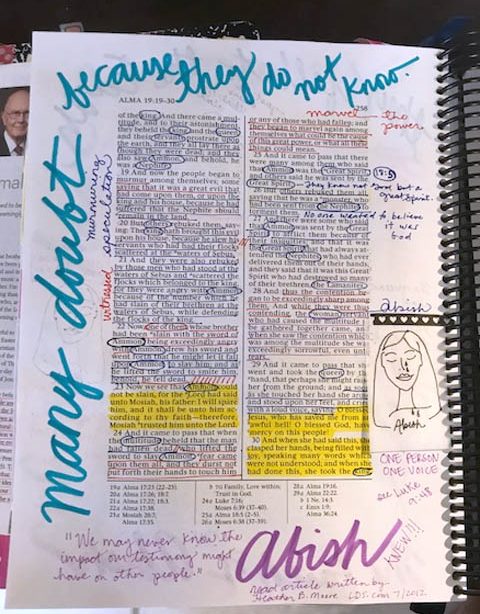 because they do not know.
many doubt
murmuring
speculation
witnessed
ALMA 19:19–30
258
marvel the
power
of the king. And there came a mul-
titude, and to their astonishment,
they beheld the king and the queen
and their servants prostrate upon
the earth, and they all lay there as
though they were dead; and they
also saw Ammon, and behold, he
was a Nephite.
19 And now the people began to
murmur among themselves; some
saying that it was a great evil that
had come upon them, or upon the
king and his house, because he had
suffered that the Nephite should
remain in the land.
20 But others rebuked them, say-
ing: The king hath brought this evil
upon his house, because he slew his
servants who had had their flocks
scattered at the waters of Sebus.
21 And they were also rebuked
by those men who had stood at the
waters of Sebus and scattered the
flocks which belonged to the king,
for they were angry with Ammon
because of the number which he
had slain of their brethren at the
waters of Sebus, while defending
the flocks of the king.
22 Now, one of them, whose brother
had been slain with the sword of
Ammon, being exceedingly angry
with Ammon, drew his sword and
went forth that he might let it fall
upon Ammon, to slay him; and as
he lifted the sword to smite him,
behold, he fell dead.
23 Now we see that Ammon could
not be slain, for the Lord had said
unto Mosiah, his father: I will spare
him, and it shall be unto him ac-
cording to thy faith—therefore,
Mosiah trusted him unto the Lord.
24 And it came to pass that when
the multitude beheld that the man
had fallen dead, who lifted the
sword to slay Ammon, fear came
upon them all, and they durst not
put forth their hands to touch him
or any of those who had fallen; and
they began to marvel again among
themselves what could be the cause
of this great power, or what all these
things could mean.
25 And it came to pass that there
were many among them who said
that Ammon was the Great Spirit,
and others said he was sent by the
Great Spirit;
26 But others rebuked them all,
saying that he was a monster, who
had been sent from the Nephites to
27 And there were some who said
that Ammon was sent by the Great
Spirit to afflict them because of
their iniquities; and that it was the
Great Spirit that had always at-
tended the Nephites, who had ever
delivered them out of their hands;
and they said that it was this Great
Spirit who had destroyed so many
of their brethren, the Lamanites.
28 And thus the contention be-
gan to be exceedingly sharp among
them. And while they were thus
contending, the woman servant
who had caused the multitude to
be gathered together came, and
when she saw the contention which
was among the multitude she was
exceedingly sorrowful, even unto
tears.
29 And it came to pass that she
went and took the queen by the
hand, that perhaps she might raise
her from the ground; and as soon
as she touched her hand she arose
and stood upon her feet, and cried
with a loud voice, saying: O blessed
Jesus, who has saved me from an
awful hell! O blessed God, have
mercy on this people!
30 And when she had said this, she
clasped her hands, being filled with
joy, speaking many words which
were not understood; and when she
had done this, she took the king,
They knew not God but a
great spirit.
No one wanted to believe
it was
God
abish
Abish
ONE PERSON
ONE VOICE
see Luke
19a Alma 17:23 (22–23).
20a Alma 17:20 (20–21).
21a Alma 17:27; 18:3.
22a Alma 17:38.
23a Mosiah 28:7;
Alma 17:35.
b TG Family, Love within;
Trust in God.
24a Luke 7:16;
25a Alma 18:5 (2–5).
28a Alma 19:16.
29a Alma 22:22.
b 1 Ne. 14:3.
c Enos 1:9;
Alma 36:24.
"We may never know the
impact our testimony might
have on other people."
Abish
KNEW!!!
read article written by
Heather B. Moore LDS.com 7/2012